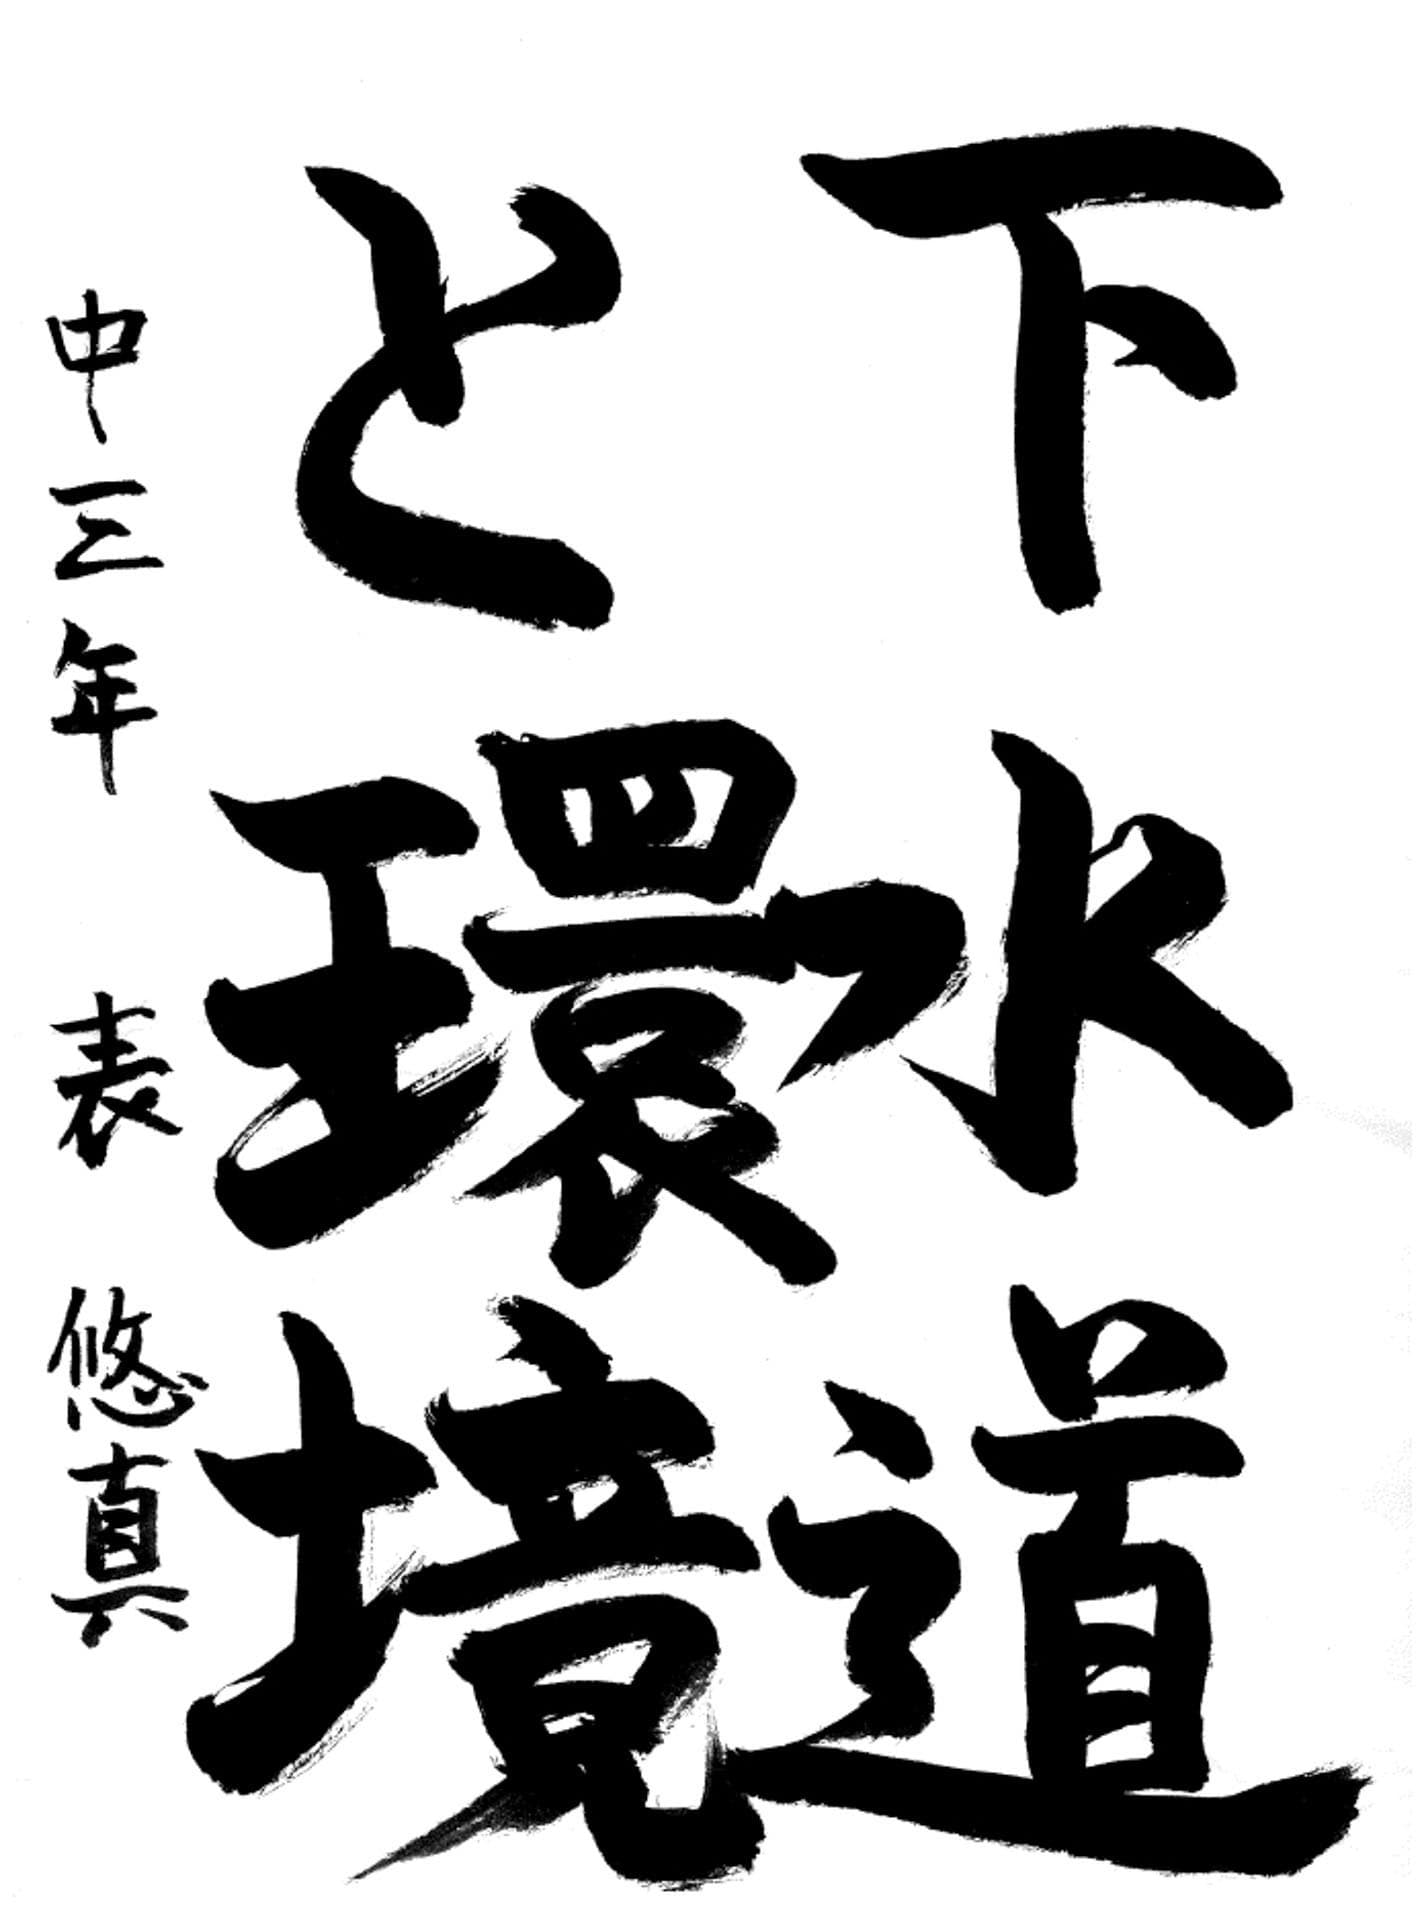 下水道
と環境
中三年 表 悠真